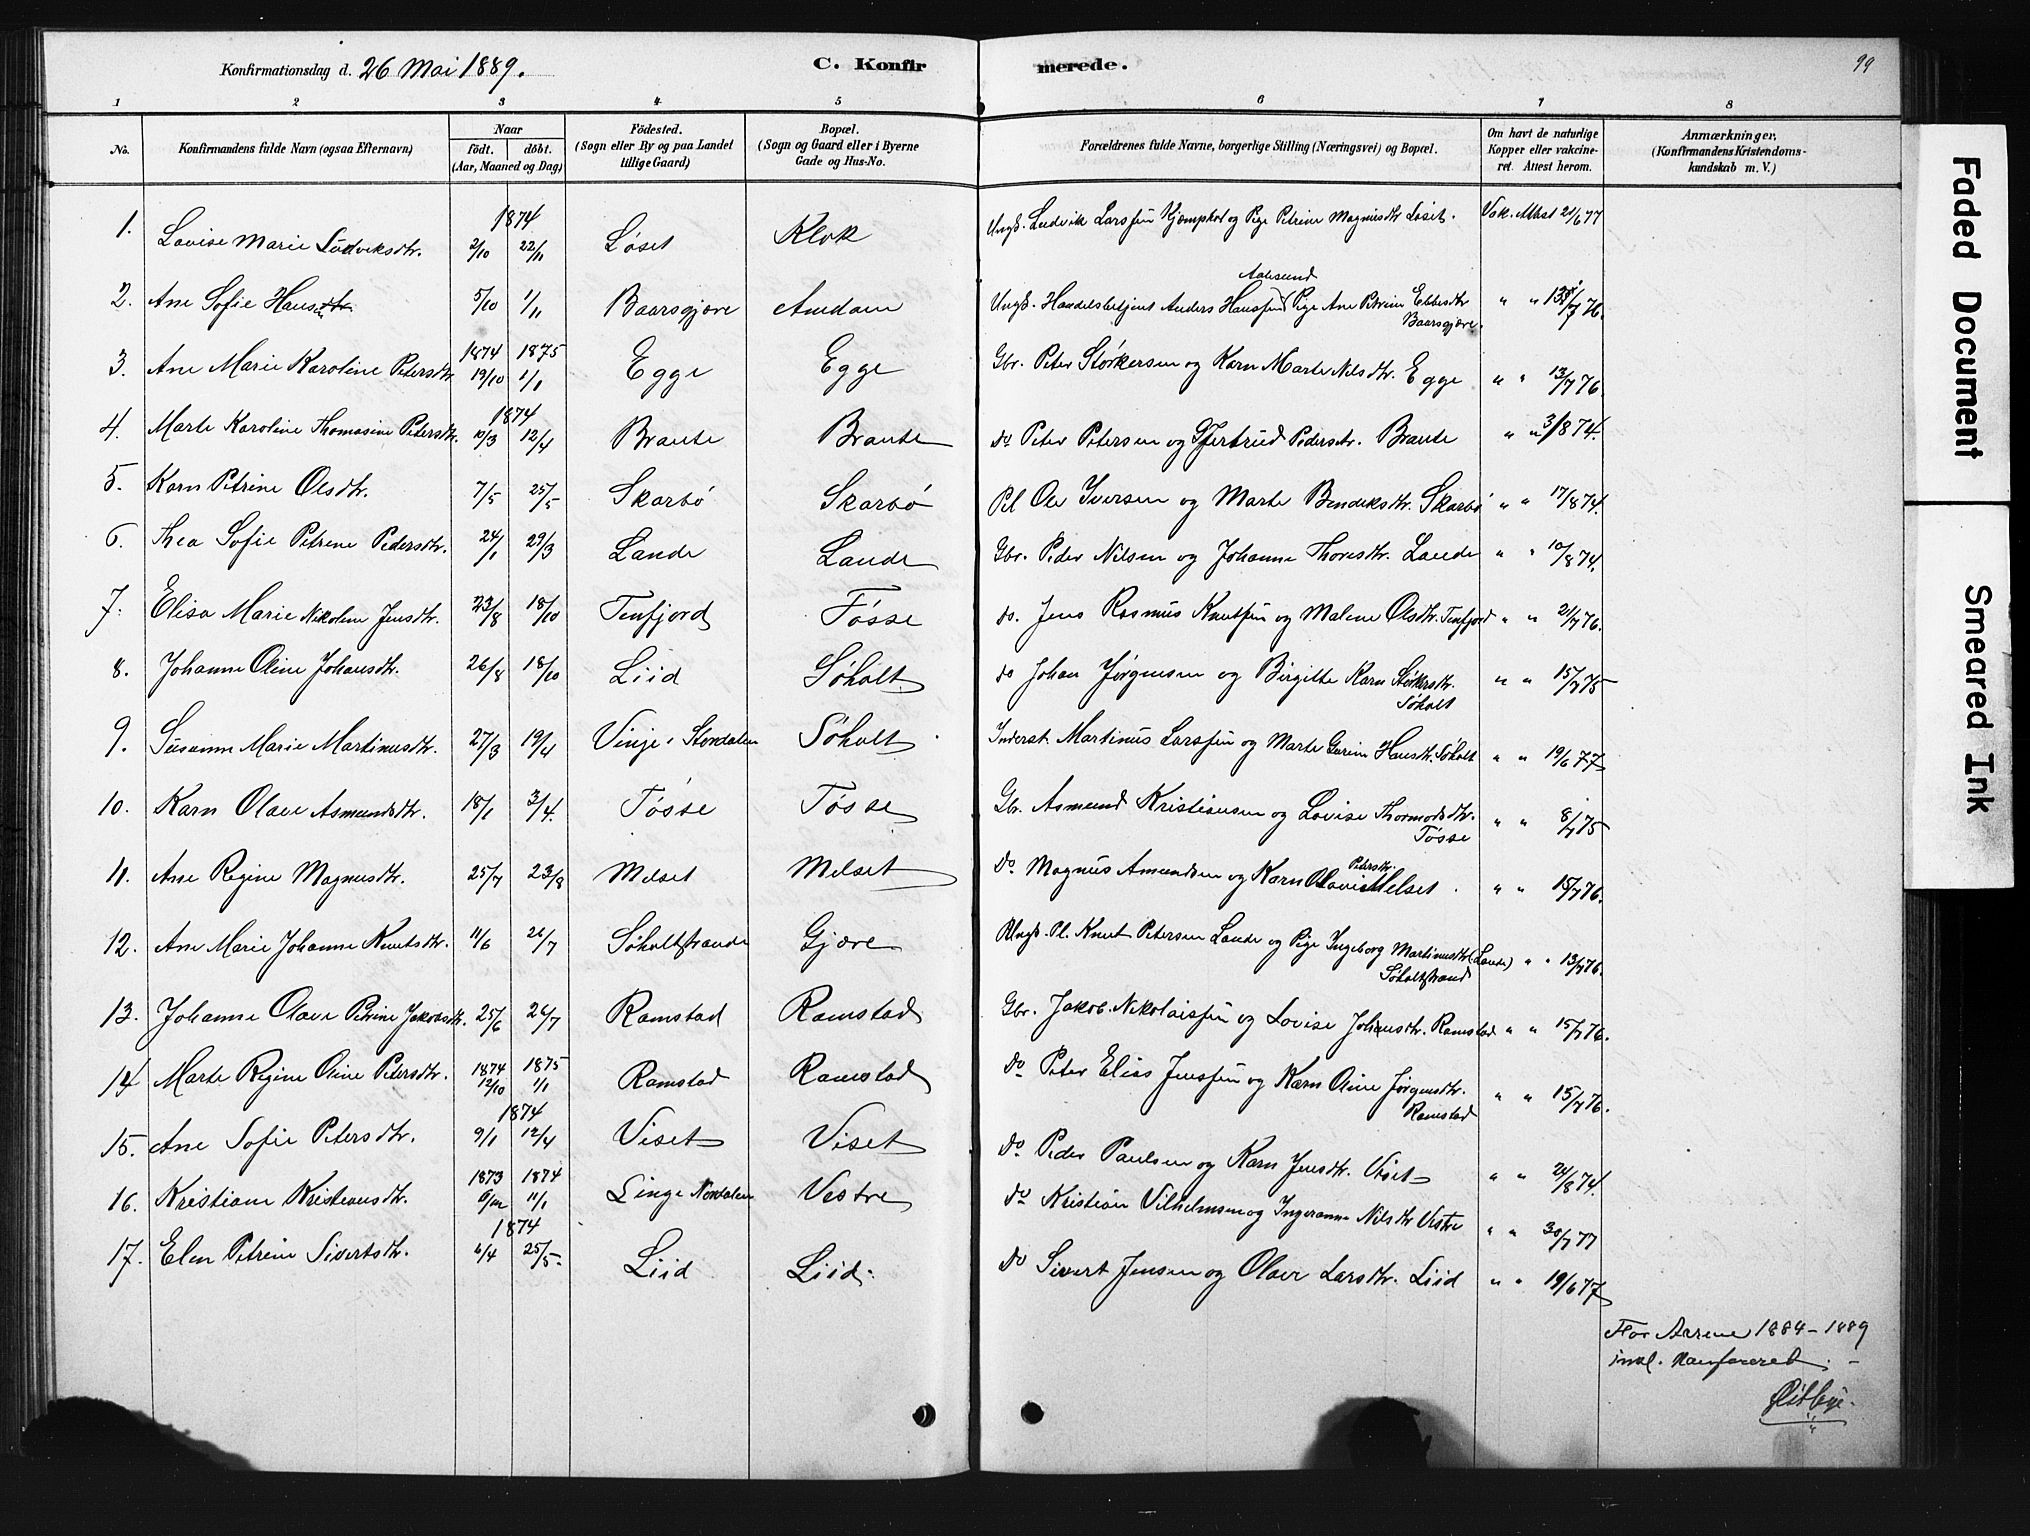 Konfirmationsdag d. 26 Mai 1889. C. Konfirmerede. 99
1 2 3 4 5 6 7 8
No. Konfirmandens fulde Navn (ogsaa Efternavn) Naar Födt. döbt. (Aar, Maaned og Dag) Födested. (Sogn eller By og paa Landet tillige Gaard) Bopæl. (Sogn og Gaard eller i Byerne Gade og Hus-No. Forældrenes fulde Navne, borgerlige Stilling (Næringsvei) og Bopæl. Om havt de naturlige Kopper eller vakcineret. Attest herom. Anmærkninger. (Konfirmandens Kristendomskundskab m. V.)
1874
1. Lovise Marie Ludviksdtr. 2/10 22/11 Løset Klok Ungk. Ludvik Larssen og Pige Petrine Magnusdtr Løset. Vak. Attest 21/6 77
Aalesund
2. Ane Sofie Hansdtr 5/10 1/11 Baarsgjære Amdam Ungk. Handelsbetjent Anders Hanssen Pige Ane Petrine Ebbesdtr Baarsgjære. " " 13/7 76.
1874 1875
3. Ane Marie Karoline Petersdtr 19/10 1/1 Egge Egge Gbr. Peter Størkersen og Karn Marte Nilsdtr. Egge " " 13/7 76.
1874
4. Marte Karoline Thomasine Petersdtr. 10/3 12/4 Braute Braute do Peter Petersen og Gjertrud Pedersdtr. Braute " " 3/8 74.
5. Karn Petrine Olsdtr. 7/5 25/5 Skarbö Skarbö Pl Ole Iversen og Marte Bendiksdtr. Skarbö " " 17/8 74.
6. Thea Sofie Petrine Pedersdtr. 24/1 29/3 Lande Lande Gbr. Peder Nilsen og Johanne Thoresdtr. Lande " " 10/8 74.
7. Elisa Marie Nikoline Jensdtr. 23/8 18/10 Tenfjord Tösse do. Jens Rasmus Knutsen og Malene Olsdtr. Tenfjord " " 21/7 76.
8. Johanne Oline Johansdtr. 26/8 18/10 Liid Söholt do Johan Jörgensen og Birgitte Karn Størkersdtr. Søholt " " 15/7 75
9. Susanne Marie Martinusdtr. 27/3 19/4 Vinje i Stordalen Söholt Inderst. Martinus Larssen og Marte Gurine Hansdtr. Søholt " " 19/6 77
10. Karn Olave Asmundsdtr. 18/1 3/4. Tösse Tösse Gbr. Asmund Kristiansen og Lovise Thormodsdtr. Tösse " " 8/7 75
11. Ane Regine Magnusdtr. 25/7 23/8 Melset Melset Do. Magnus Amundsen og Karn Olave Petersdtr. Melset. " " 15/7 76.
12. Ane Marie Johanne Knutsdtr. 11/6 26/7 Søholtstrande Gjære Ungk. Pl. Knut Petersen Lande og Pige Ingeborg Martinusdtr (Lande) Søholtstrand " " 13/7 76.
13. Johanne Olave Petrine Jakobsdtr. 25/6 26/7 Ramstad Ramstad Gbr. Jakob Nikolaissen og Lovise Johansdtr. Ramstad " " 15/7 76.
1874 1875
14 Marte Regine Oline Petersdtr. 12/10 1/1 Ramstad Ramstad Do Peter Elias Jenssen og Karn Oline Jørgensdtr. Ramstad " " 15/7 76.
1874
15. Ane Sofie Petersdtr. 9/1 12/4 Viset Viset Do Peder Paulsen og Karn Jensdtr. Viset " " 24/8 74.
1873 1874
16. Kristiane Kristiansdtr. 6/12 11/1 Linge Nordalen Vestre do Kristian Vilhelmsen og Ingeranna Nilsdtr Vestre " " 30/7 77
1874
17. Elen Petrine Sivertsdtr. 6/4 25/5 Liid Liid. Do Sivert Jensen og Olave Larsdtr. Liid " " 19/6 77
For Aarene 1884-1889
inkl. Konfereret.
Faded Document
Smeared Ink